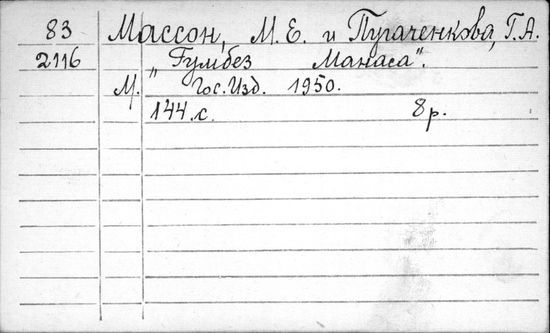 83 Массон, М. Е. и Пугаченкова, Г. А.
2116 „Гумбез Манаса".
М. Гос. Изд. 1950.
144 с. 8 р.